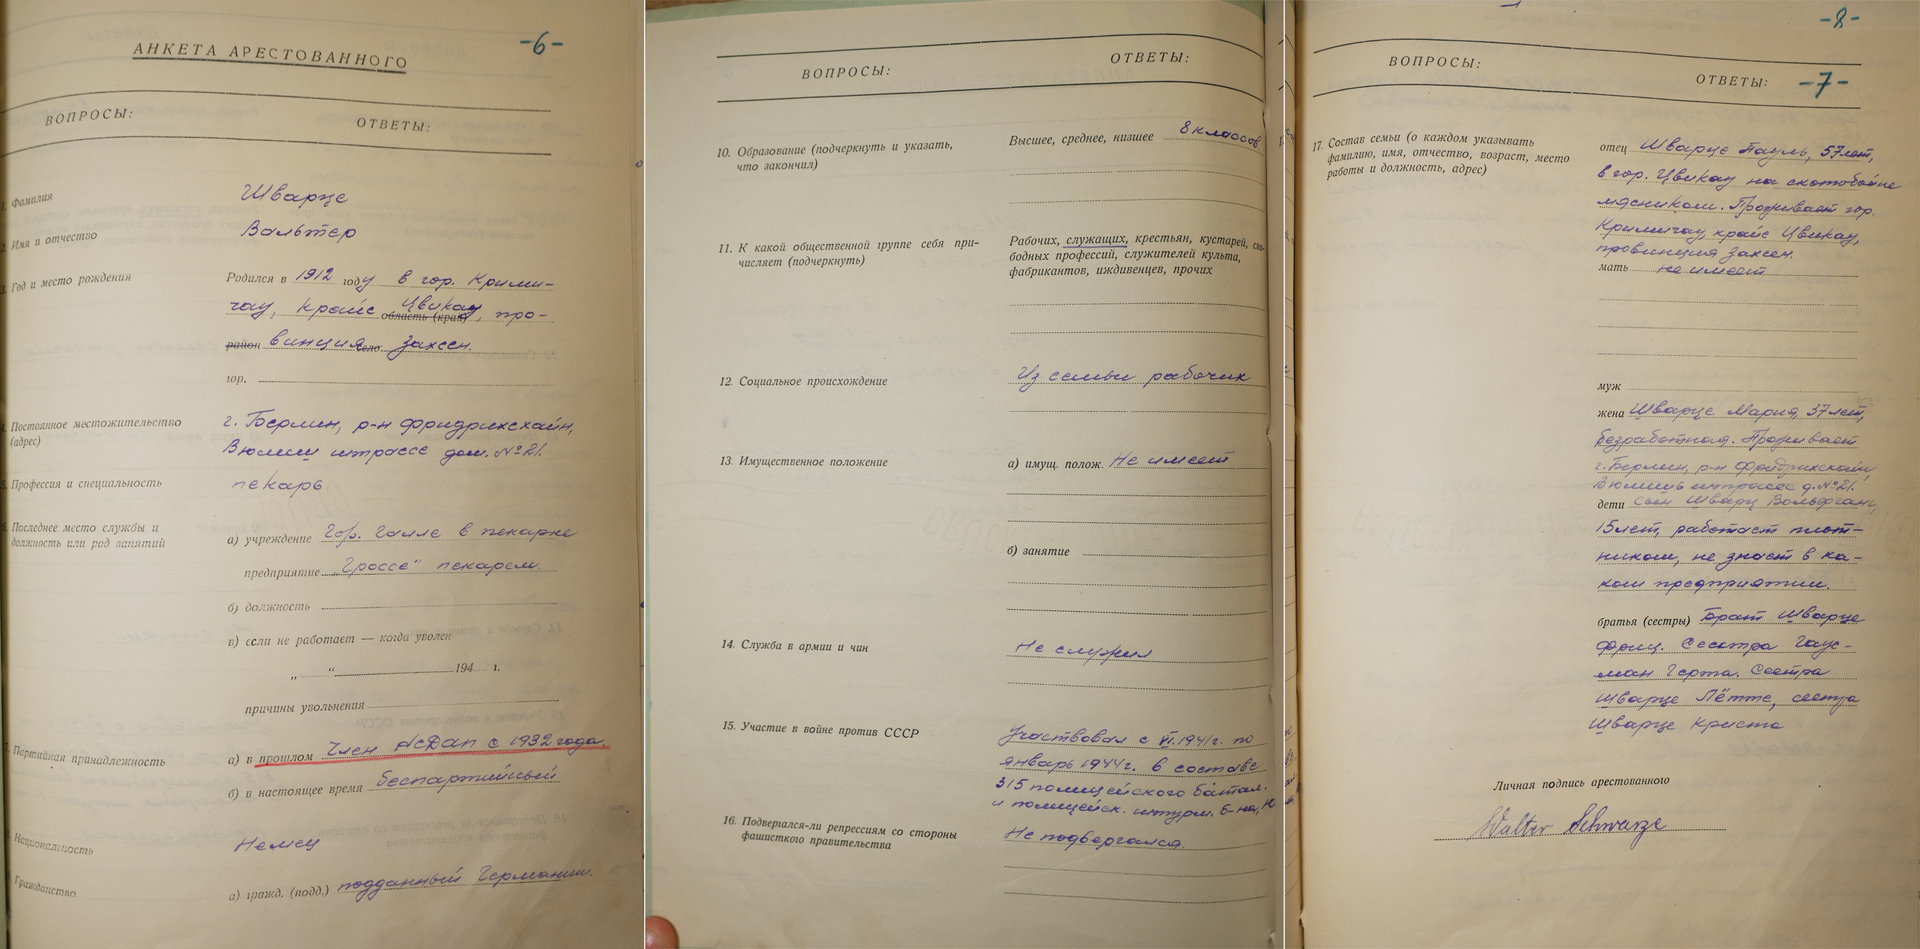 -6-
АНКЕТА АРЕСТОВАННОГО
ВОПРОСЫ:
ОТВЕТЫ:
1. Фамилия
Шварце
2. Имя и отчество
Вальтер
3. Год и место рождения
Родился в 1912 году в гор. Крими-
чау, крайс Цвикау, про-
область (край)
район винция село Заксен.
гор.
4. Постоянное местожительство
(адрес)
г. Берлин, р-н Фридрихсхайн,
Вюлиш штрассе дом. №21.
5. Профессия и специальность
пекарь
6. Последнее место службы и
должность или род занятий
а) учреждение Гор. Галле в пекарне
предприятие „Гроссе" пекарем.
б) должность
в) если не работает — когда уволен
„ “ 194 г.
причины увольнения
7. Партийная принадлежность
а) в прошлом Член НСДАП с 1932 года.
б) в настоящее время беспартийный
8. Национальность
Немец
9. Гражданство
а) гражд. (подд.) подданный Германии.
ВОПРОСЫ:
ОТВЕТЫ:
10. Образование (подчеркнуть и указать,
что закончил)
Высшее, среднее, низшее 8 классов
11. К какой общественной группе себя при-
числяет (подчеркнуть)
Рабочих, служащих, крестьян, кустарей, сво-
бодных профессий, служителей культа,
фабрикантов, иждивенцев, прочих
12. Социальное происхождение
Из семьи рабочих
13. Имущественное положение
а) имущ. полож. Не имеет
б) занятие
14. Служба в армии и чин
Не служил
15. Участие в войне против СССР
Участвовал с VI.1941г. по
январь 1944г. в составе
315 полицейского батал.
и полицейск. штурм. б-на,
16. Подвергался-ли репрессиям со стороны
фашисткого правительства
Не подвергался.
-8-
ВОПРОСЫ:
ОТВЕТЫ:
-7-
17. Состав семьи (о каждом указывать
фамилию, имя, отчество, возраст, место
работы и должность, адрес)
отец Шварце Пауль, 57 лет,
в гор. Цвикау на скотобойне
мясником. Проживает гор.
Кримичау, крайс Цвикау,
провинция Заксен.
мать не имеет
муж
жена Шварце Мария, 37 лет,
безработная. Проживает
г. Берлин, р-н Фридрихсхайн,
Вюлишь штрассе д. №21.
дети сын Шварц Вольфганг,
15 лет, работает плот-
ником, не знает в ка-
ком предприятии.
братья (сестры) Брат Шварце
Фриц. Сестра Гаус-
ман Герта. Сестра
Шварце Лётте, сестра
Шварце Криста
Личная подпись арестованного
Walter Schwarze